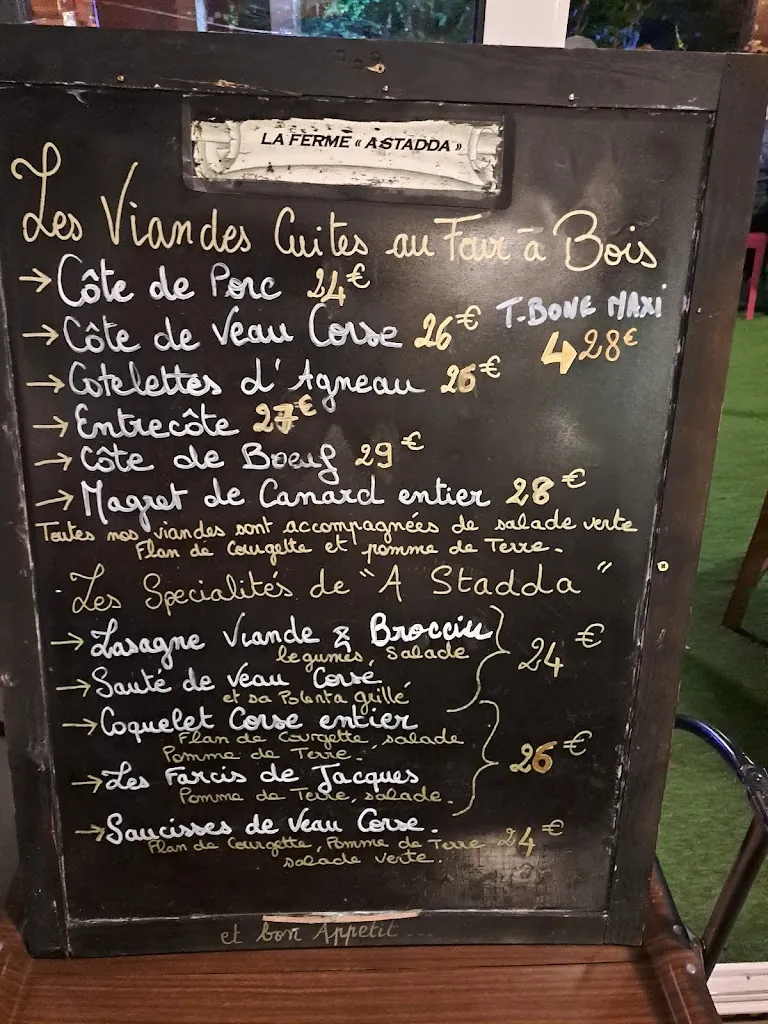 LA FERME « A STADDA »
Les Viandes Cuites au Four à Bois
→ Côte de Porc 24€
→ Côte de Veau Corse 26€
T-BONE MAXI
28€
→ Cotelettes d'Agneau 26€
→ Entrecôte 27€
→ Côte de Boeuf 29€
→ Magret de Canard entier 28€
Toutes nos viandes sont accompagnées de salade verte
Flan de Courgette et pomme de Terre.
Les Specialités de "A Stadda"
→ Lasagne Viande & Brocciu
legumes, Salade
24€
→ Sauté de veau Corse
et sa Polenta grillé
→ Coquelet Corse entier
Flan de Courgette, salade
Pomme de Terre.
26€
→ Les Farcis de Jacques
Pomme de Terre, salade.
→ Saucisses de veau Corse.
Flan de Courgette, Pomme de Terre 24€
salade verte.
et bon Appétit...